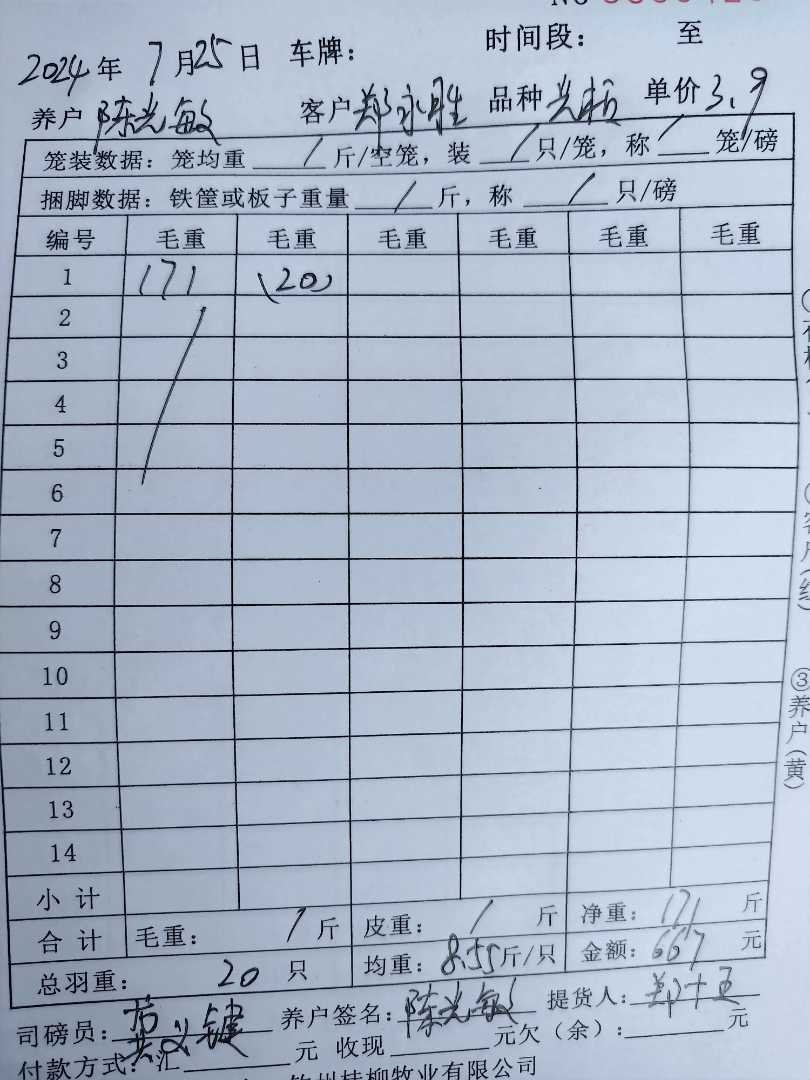 2024年7月25日 车牌： 时间段： 至
养户 陈光敏 客户 郑永胜 品种 单价 3.9
笼装数据：笼均重 / 斤/空笼，装 / 只/笼，称 / 笼/磅
捆脚数据：铁筐或板子重量 / 斤，称 / 只/磅
编号 毛重 毛重 毛重 毛重 毛重 毛重
1 171 (20)
2
3
4
5
6
7
8
9
10
11
12
13
14
小计
合计 毛重： / 斤 皮重： / 斤 净重：171 斤
总羽重： 20 只 均重：8.55斤/只 金额：667 元
司磅员： 养户签名：陈光敏 提货人：
付款方式：汇 元 收现 元欠（余）： 元
桂柳牧业有限公司
③养户（黄）